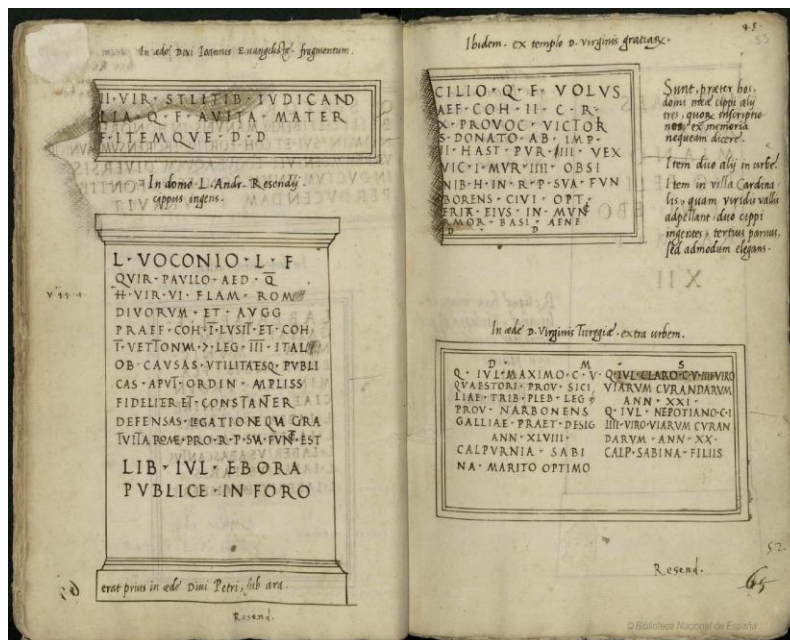 In æde Divi Ioannis Evangelistæ fragmentum.
II · VIR · STLITIB · IVDICAND
LIA · Q · F · AVITA · MATER
F · ITEMQVE · D · D
In domo L. Andr. Resendij
cippus ingens.
L · VOCONIO · L · F
QVIR · PAVLLO · AED · Q
II · VIR · VI · FLAM · ROM
DIVORVM · ET · AVGG
PRAEF · COH · I · LVSIT · ET · COH
I · VETTONVM · > · LEG · III · ITAL
OB · CAVSAS · VTILITATESQ · PVBLI
CAS · APVT · ORDIN · AMPLISS
FIDELITER · ET · CONSTANTER
DEFENSAS · LEGATIONE · QVA · GRA
TVITA · ROMAE · PRO · R · P · SVA · FVNCT · EST
LIB · IVL · EBORA
PVBLICE · IN · FORO
erat prius in æde Divi Petri, sub ara.
Resend.
Ibidem. ex templo D. Virginis gratiar.
CILIO · Q · F · VOLVS
AEF · COH · II · C · R ·
X · PROVOC · VICTOR
S · DONATO · AB · IMP ·
II · HAST · PVR · IIII · VEX
VIC · I · MVR · IIII · OBSI
NIB · H · IN · R · P · SVA · FVN
BORENS · CIVI · OPT ·
ERIA · EIVS · IN · MVN
RMOR · BASI · AENE
D D
Sunt, præter hos,
domi meæ cippi alij
tres, quor inscriptio
nes, ex memoria
nequeam dicere.
Item duo alij in urbe.
Item in villa Cardina
lis, quam viridis vallis
adpellant, duo cippi
ingentes, tertius parvus,
sed admodum elegans.
In æde D. Virginis Turegiæ extra urbem.
D · M · S
Q · IVL · MAXIMO · C · V ·
QVAESTORI · PROV · SICI,
LIAE · TRIB · PLEB · LEG
PROV · NARBONENS
GALLIAE · PRAET · DESIG
ANN · XLVIII ·
CALPVRNIA · SABI
NA · MARITO OPTIMO
Q · IVL · CLARO · C · V · IIII VIRO
VIARVM CVRANDARVM
ANN · XXI ·
Q · IVL · NEPOTIANO · C · I
IIII · VIRO · VIARVM CVRAN
DARVM · ANN · XX ·
CALP · SABINA · FILIIS
Resend.
52.
65
© Biblioteca Nacional de España